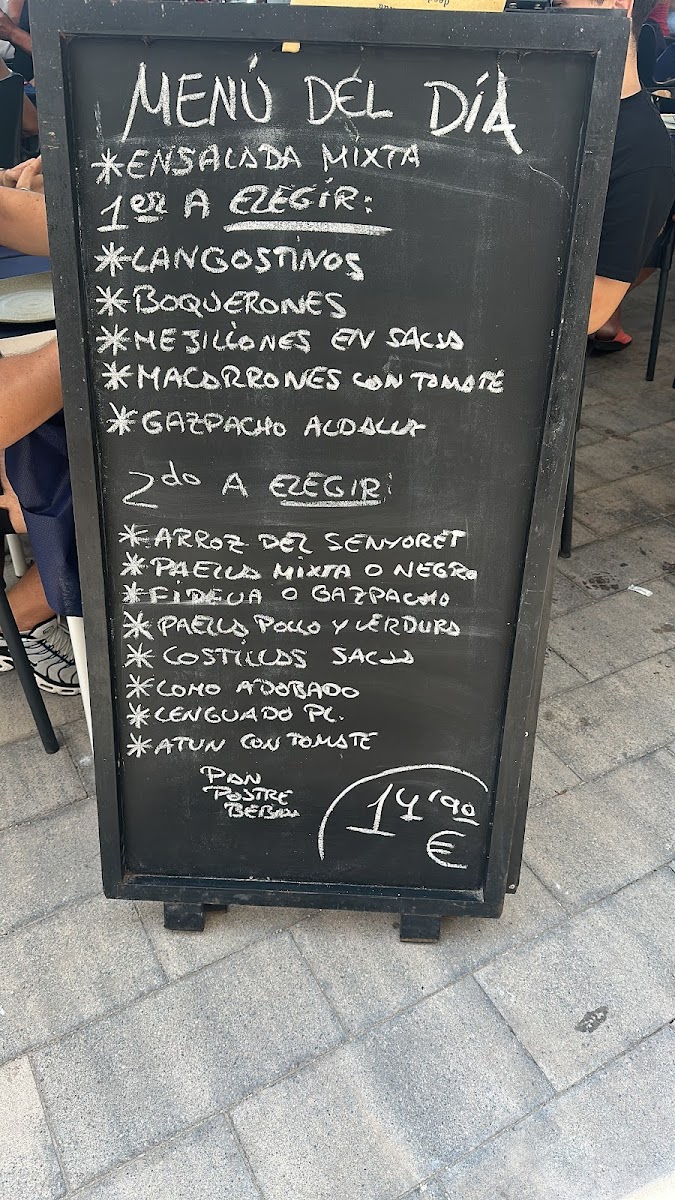 MENÚ DEL DÍA
*ENSALADA MIXTA
1er A ELEGIR:
*LANGOSTINOS
*BOQUERONES
*MEJILLONES EN SALSA
*MACARRONES CON TOMATE
*GAZPACHO
2do A ELEGIR:
*ARROZ DEL SENYORET
*PAELLA MIXTA O NEGRO
*FIDEUA O GAZPACHO
*PAELLA POLLO Y VERDURA
*COSTILLAS SALSA
*LOMO ADOBADO
*LENGUADO PL.
*ATUN CON TOMATE
PAN
POSTRE
BEBIDA
14'90
€